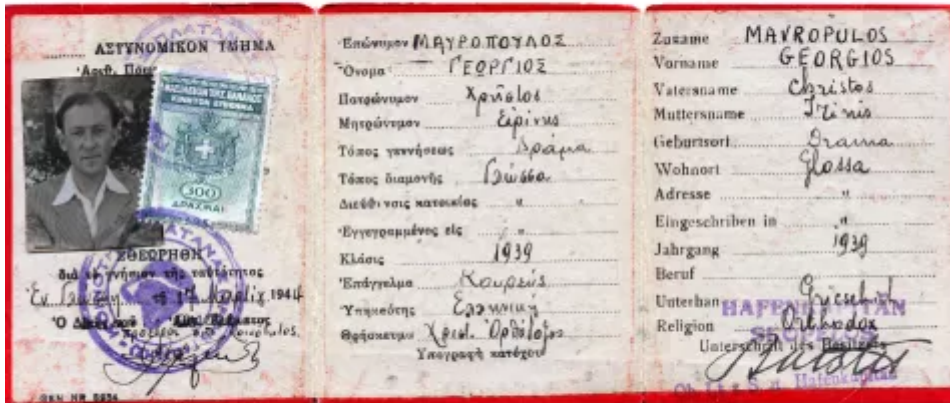 ΑΣΤΥΝΟΜΙΚΟΝ ΤΜΗΜΑ
ΒΑΣΙΛΕΙΟΝ ΤΗΣ ΕΛΛΑΔΟΣ
300
ΔΡΑΧΜΑΙ
ΕΘΕΩΡΗΘΗ
διὰ τὸ γνήσιον τῆς ταὐτότητος
1944
Ἐπώνυμον ΜΑΥΡΟΠΟΥΛΟΣ
Ὄνομα ΓΕΩΡΓΙΟΣ
Πατρώνυμον Χρῆστος
Μητρώνυμον Εἰρίνης
Τόπος γεννήσεως Δράμα
Τόπος διαμονῆς Γλώσσα
Διεύθυνσις κατοικίας "
Ἐγγεγραμμένος εἰς "
Κλάσις 1939
Ἐπάγγελμα Κουρεύς
Ὑπηκοότης Ἑλληνική
Θρήσκευμα Χριστ. Ὀρθόδοξος
Ὑπογραφὴ κατόχου
Zuname MAVROPULOS
Vorname GEORGIOS
Vatersname Christos
Muttersname Irinis
Geburtsort Drama
Wohnort Glossa
Adresse "
Eingeschriben in "
Jahrgang 1939
Beruf
Unterhan Griesch
HAFENKAPITÄN
Religion Orthodox
Unterschrift des Besitzers
Hafenkapitän